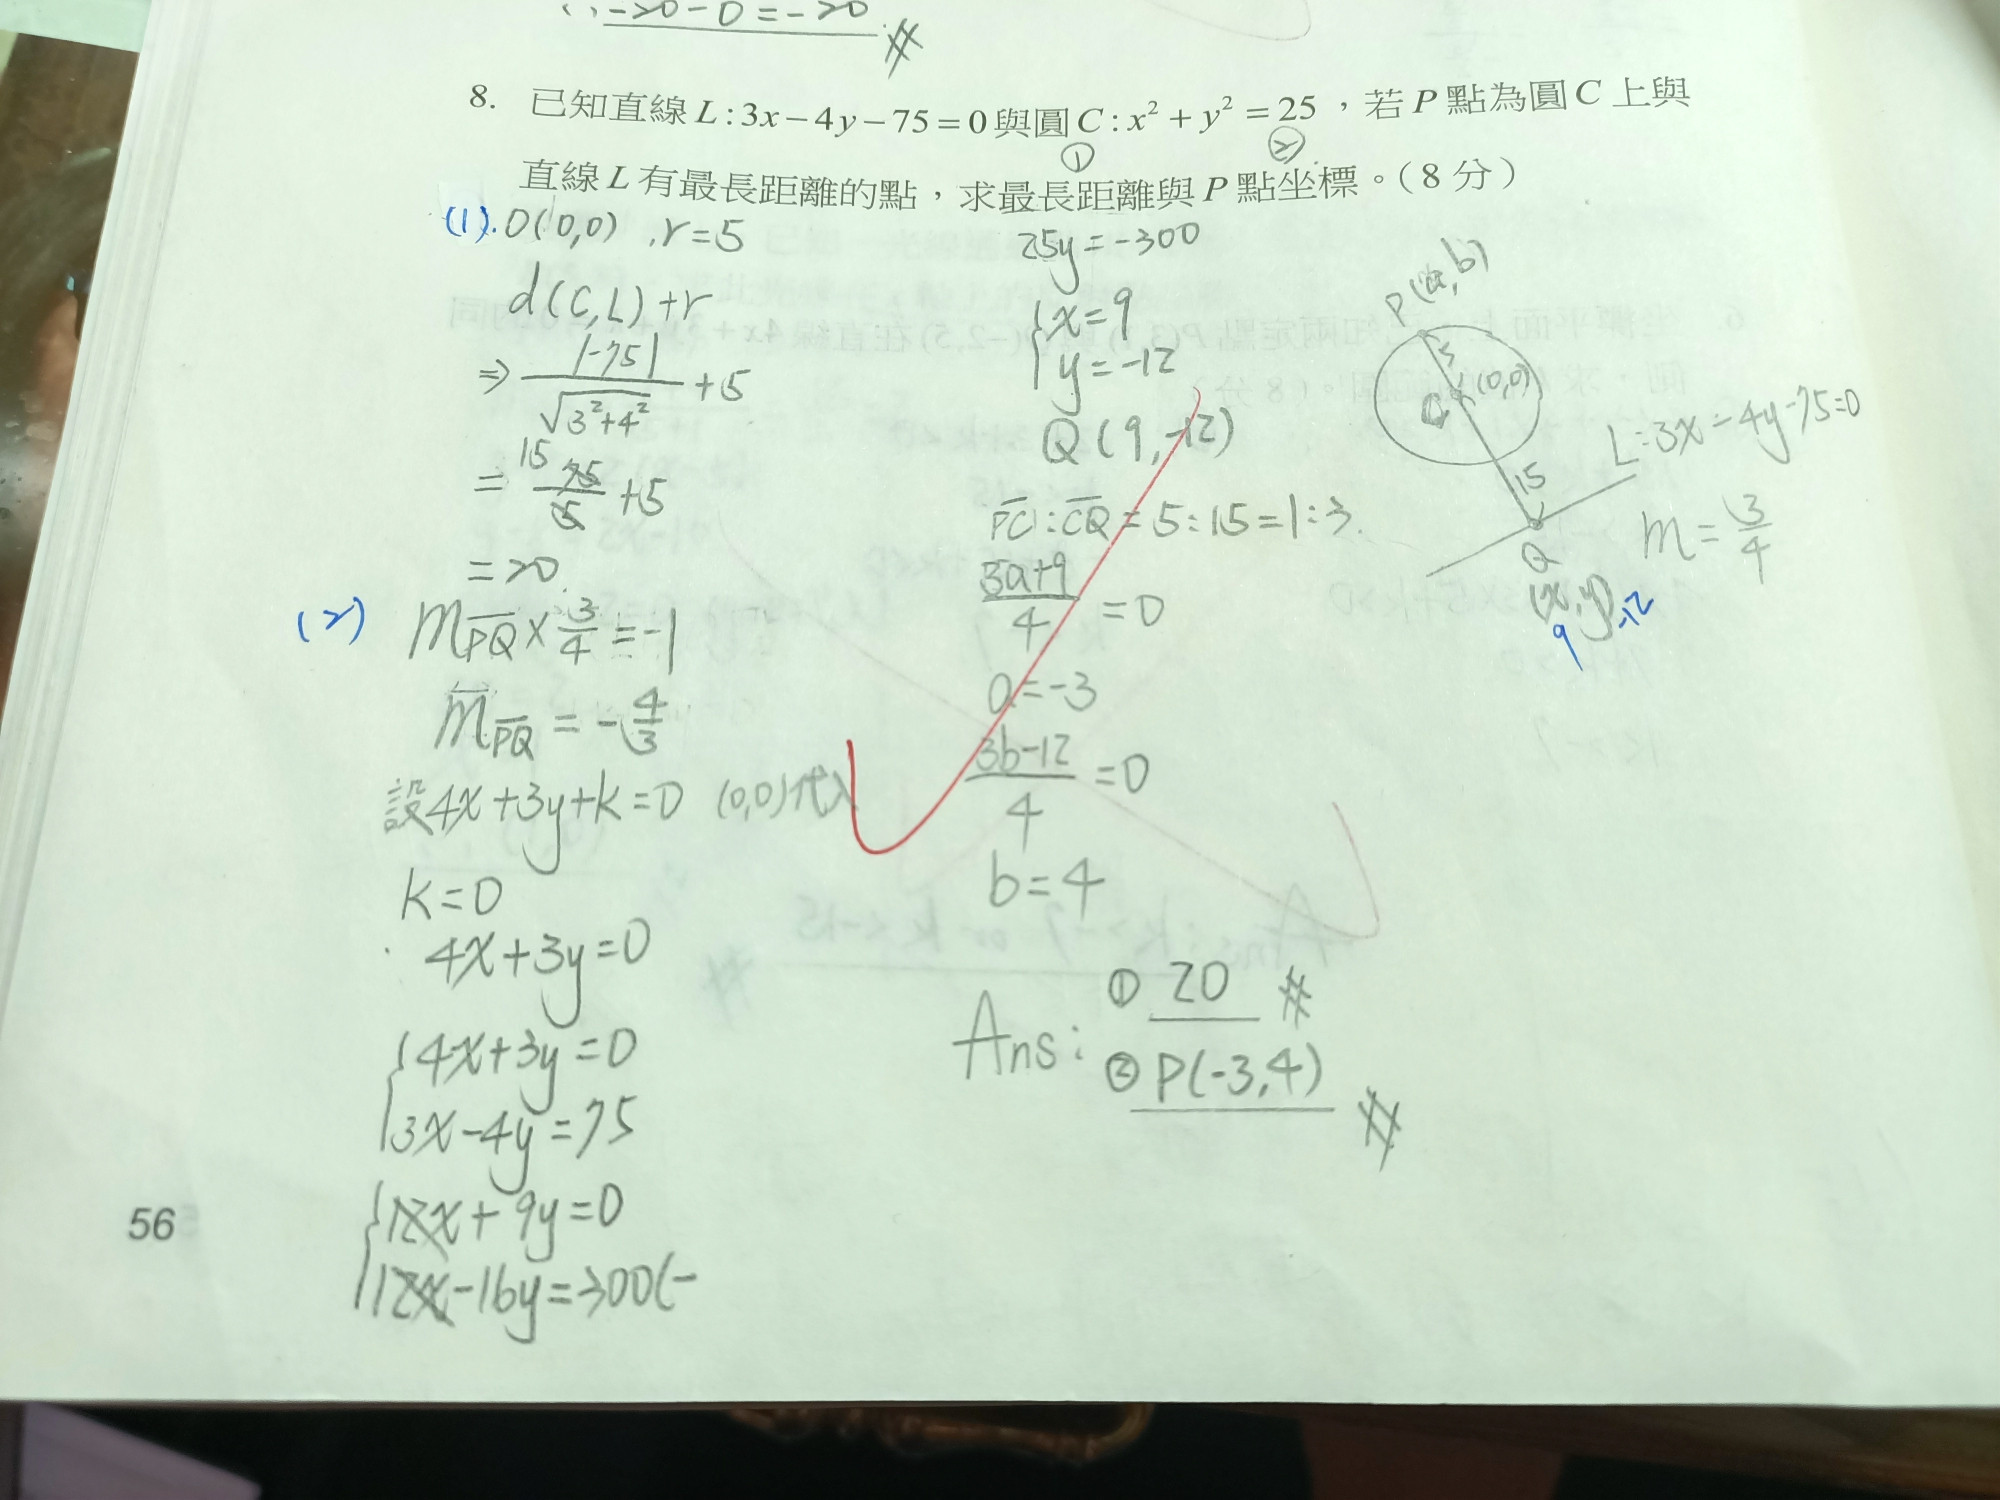 ∴ -20-0=-20 #
8. 已知直線 L:3x-4y-75=0與圓C:x²+y²=25，若P點為圓C上與
① ②
直線L有最長距離的點，求最長距離與P點坐標。(8分)
(1). O(0,0) , r=5
d(C,L)+r
⇒ |-75|/√(3²+4²) +5
= 15 75/5 +5
=20
(2) m_PQ × 3/4 = -1
m_PQ = -4/3
設4x+3y+k=0 (0,0)代入
k=0
4x+3y=0
{4x+3y=0
3x-4y=75
{12x+9y=0
12x-16y=300(-
25y=-300
{x=9
y=-12
Q(9,-12)
PC:CQ=5:15=1:3.
(3a+9)/4 =0
a=-3
(3b-12)/4 =0
b=4
Ans: ① 20 #
② P(-3,4) #
P(a,b)
5
C (0,0)
15
L:3x-4y-75=0
m=3/4
Q
(x,y)
9 -12
56